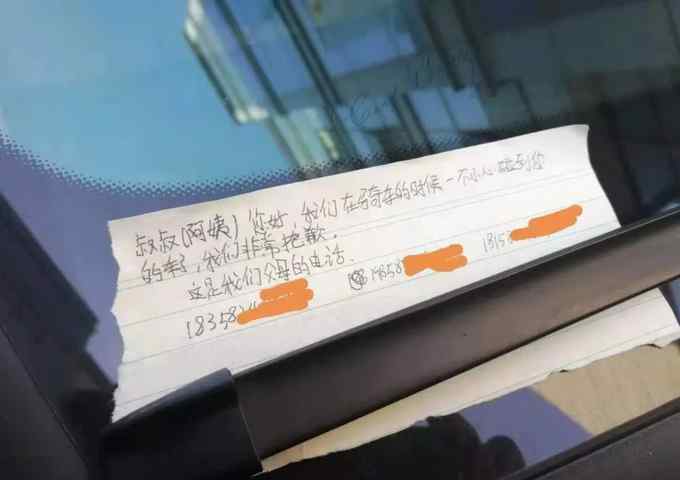 叔叔[阿姨]你好 我们在骑车的时候一个小心碰到您
的车,我们非常抱歉.
这是我们父母的电话.
18358 1858 13158